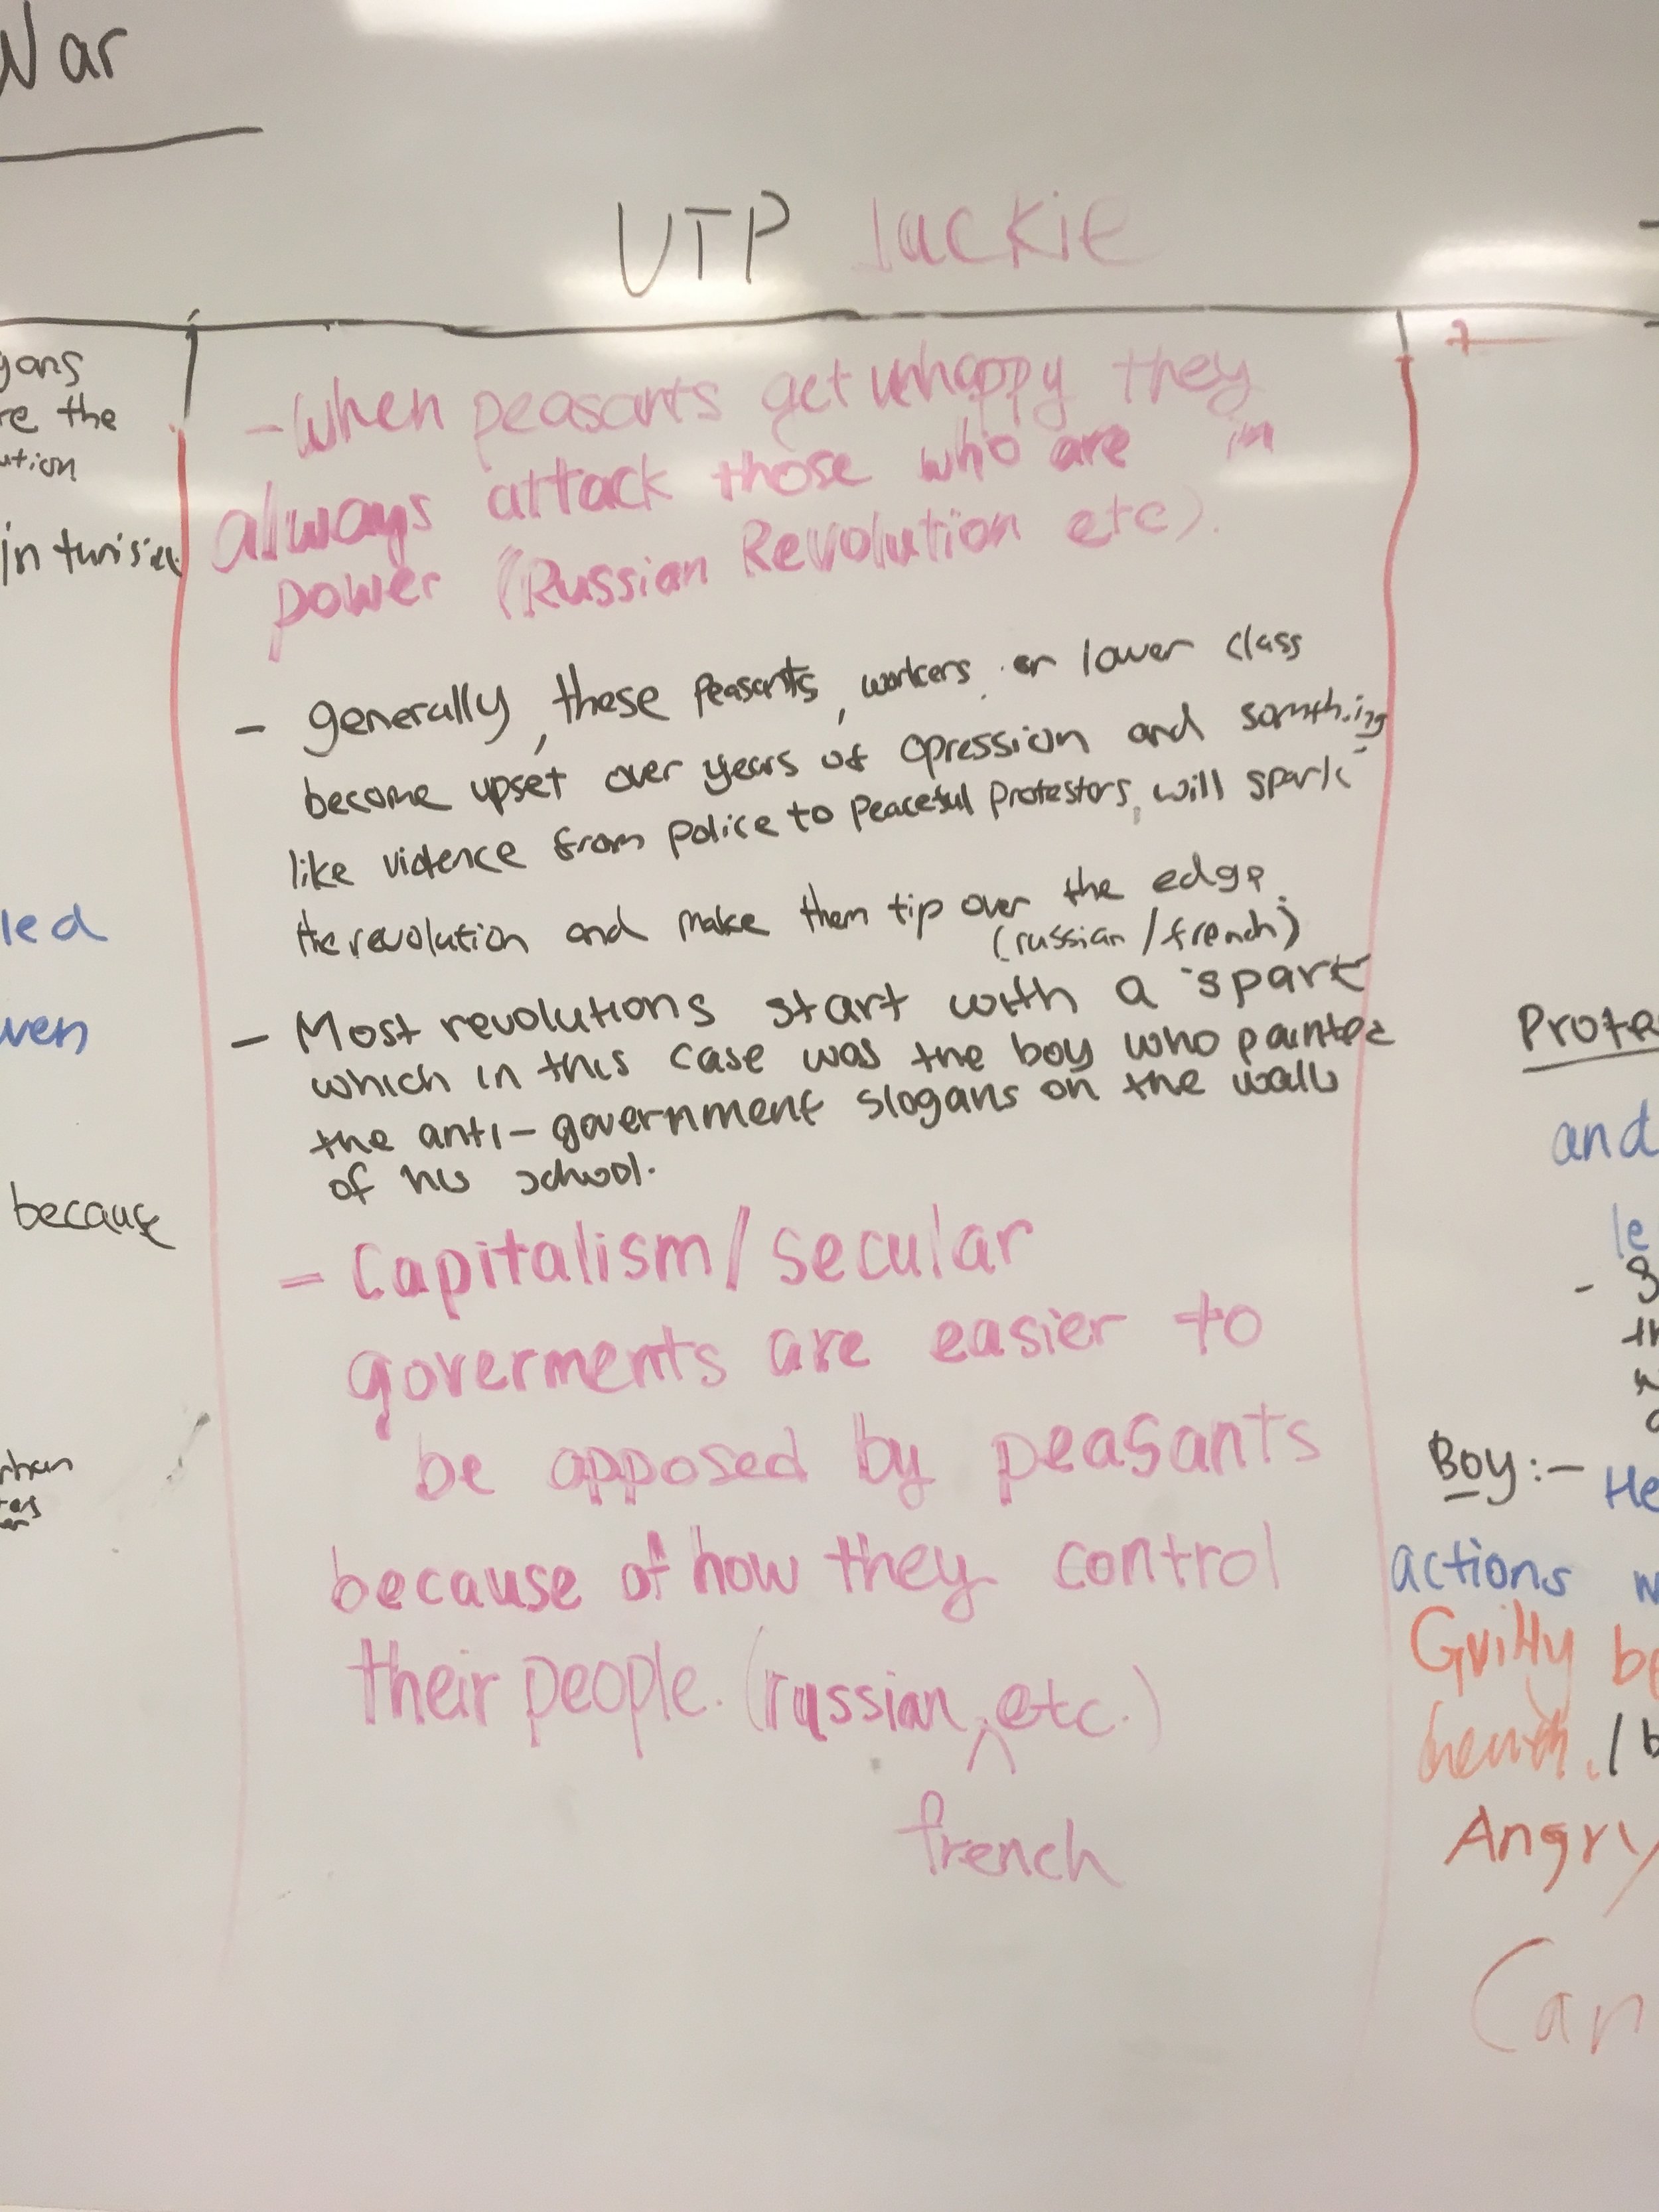 War
UTP Jackie
gons
re the
ution
in tunisia
led
ven
because
- When peasants get unhappy they
always attack those who are in
power (Russian Revolution etc).
- generally, these peasants, workers, or lower class
become upset over years of opression and something
like violence from police to peaceful protestors, will spark
the revolution and make them tip over the edge.
(russian / french)
- Most revolutions start with a "spark"
which in this case was the boy who painted
the anti-government slogans on the walls
of his school.
- Capitalism/secular
goverments are easier to
be opposed by peasants
because of how they control
their people. (russian, ^ etc.)
french
Prote
and
le
Boy:- He
actions w
Guilty be
/ b
Angry
Can